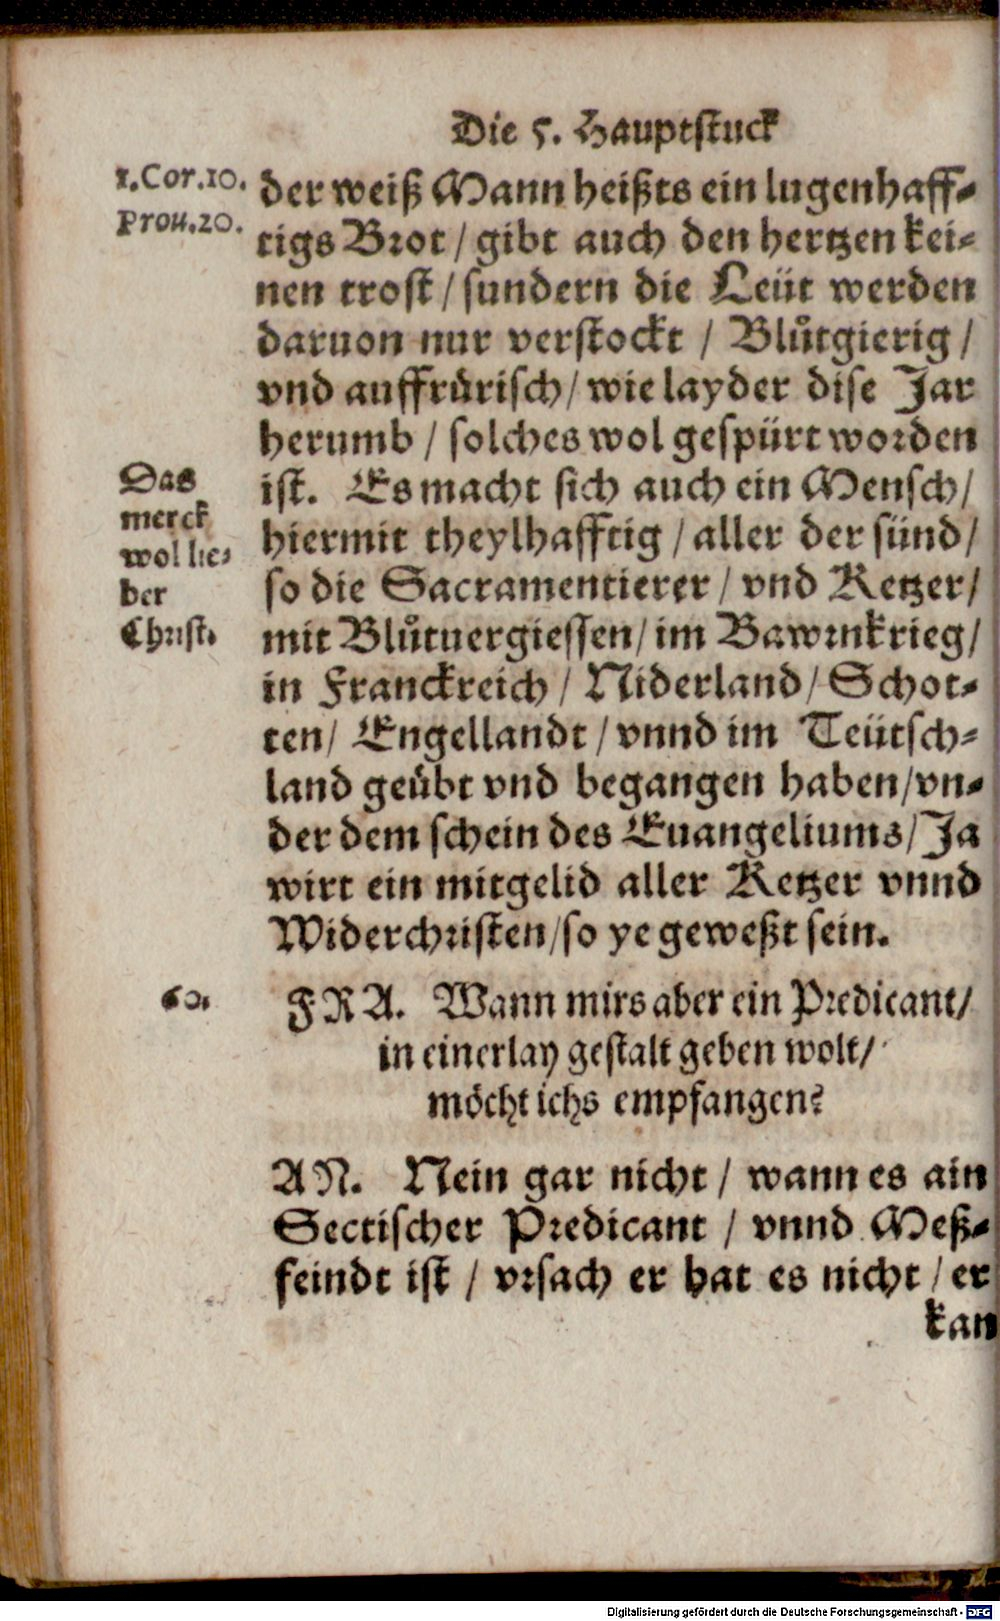 Die 5. Hauptstuck
1.Cor.10.
Prou.20.
der weiß Mann heißts ein lugenhaff-
tigs Brot / gibt auch den hertzen kei-
nen trost / sundern die Leüt werden
daruon nur verstockt / Blůtgierig /
vnd auffrůrisch / wie layder dise Jar
herumb / solches wol gespürt worden
Das
merck
wol lie-
ber
Christ.
ist. Es macht sich auch ein Mensch /
hiermit theylhafftig / aller der sünd /
so die Sacramentierer / vnd Ketzer /
mit Blůtuergiessen / im Bawrnkrieg /
in Franckreich / Niderland / Schot-
ten / Engellandt / vnnd im Teütsch-
land geůbt vnd begangen haben / vn-
der dem schein des Euangeliums / Ja
wirt ein mitgelid aller Ketzer vnnd
Widerchristen / so ye geweßt sein.
60.
FRA. Wann mirs aber ein Predicant /
in einerlay gestalt geben wolt /
möcht ichs empfangen?
AN. Nein gar nicht / wann es ain
Sectischer Predicant / vnnd Meß-
feindt ist / vrsach er hat es nicht / er
kan
Digitalisierung gefördert durch die Deutsche Forschungsgemeinschaft - DFG